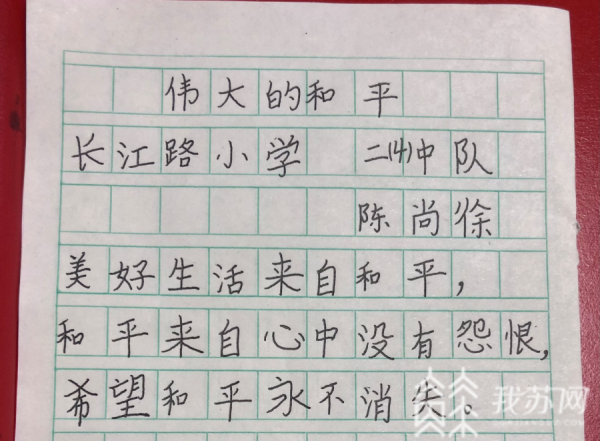 伟大的和平
长江路小学 二(4)中队
陈尚徐
美好生活来自和平,
和平来自心中没有怨恨,
希望和平永不消失。
我苏网